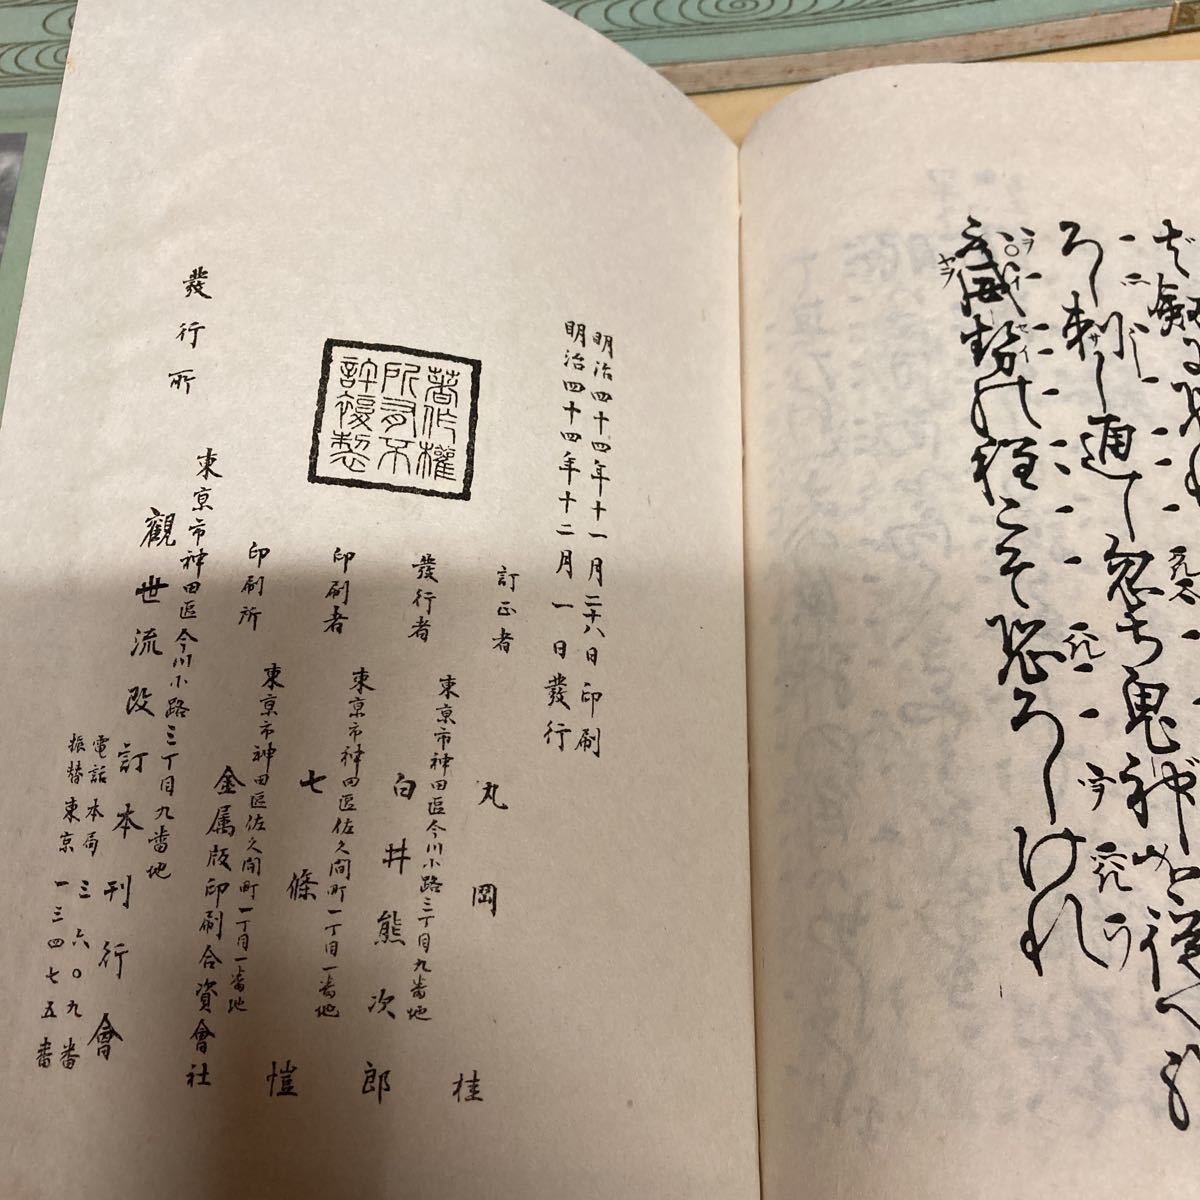 ろし刺し通し忽ち鬼神に従へ
威勢の程こそ恐ろしけれ
明治四十四年十一月二十八日印刷
明治四十四年十二月一日發行
訂正者
丸岡桂
發行者
東京市神田區今川小路三丁目九番地
白井熊次郎
印刷者
東京市神田區佐久間町一丁目一番地
七條愷
印刷所
東京市神田區佐久間町一丁目一番地
金属版印刷合資會社
著作權
所有不
許複製
發行所
東京市神田區今川小路三丁目九番地
觀世流改訂本刊行會
電話本局三六〇九番
振替東京一三四七五番